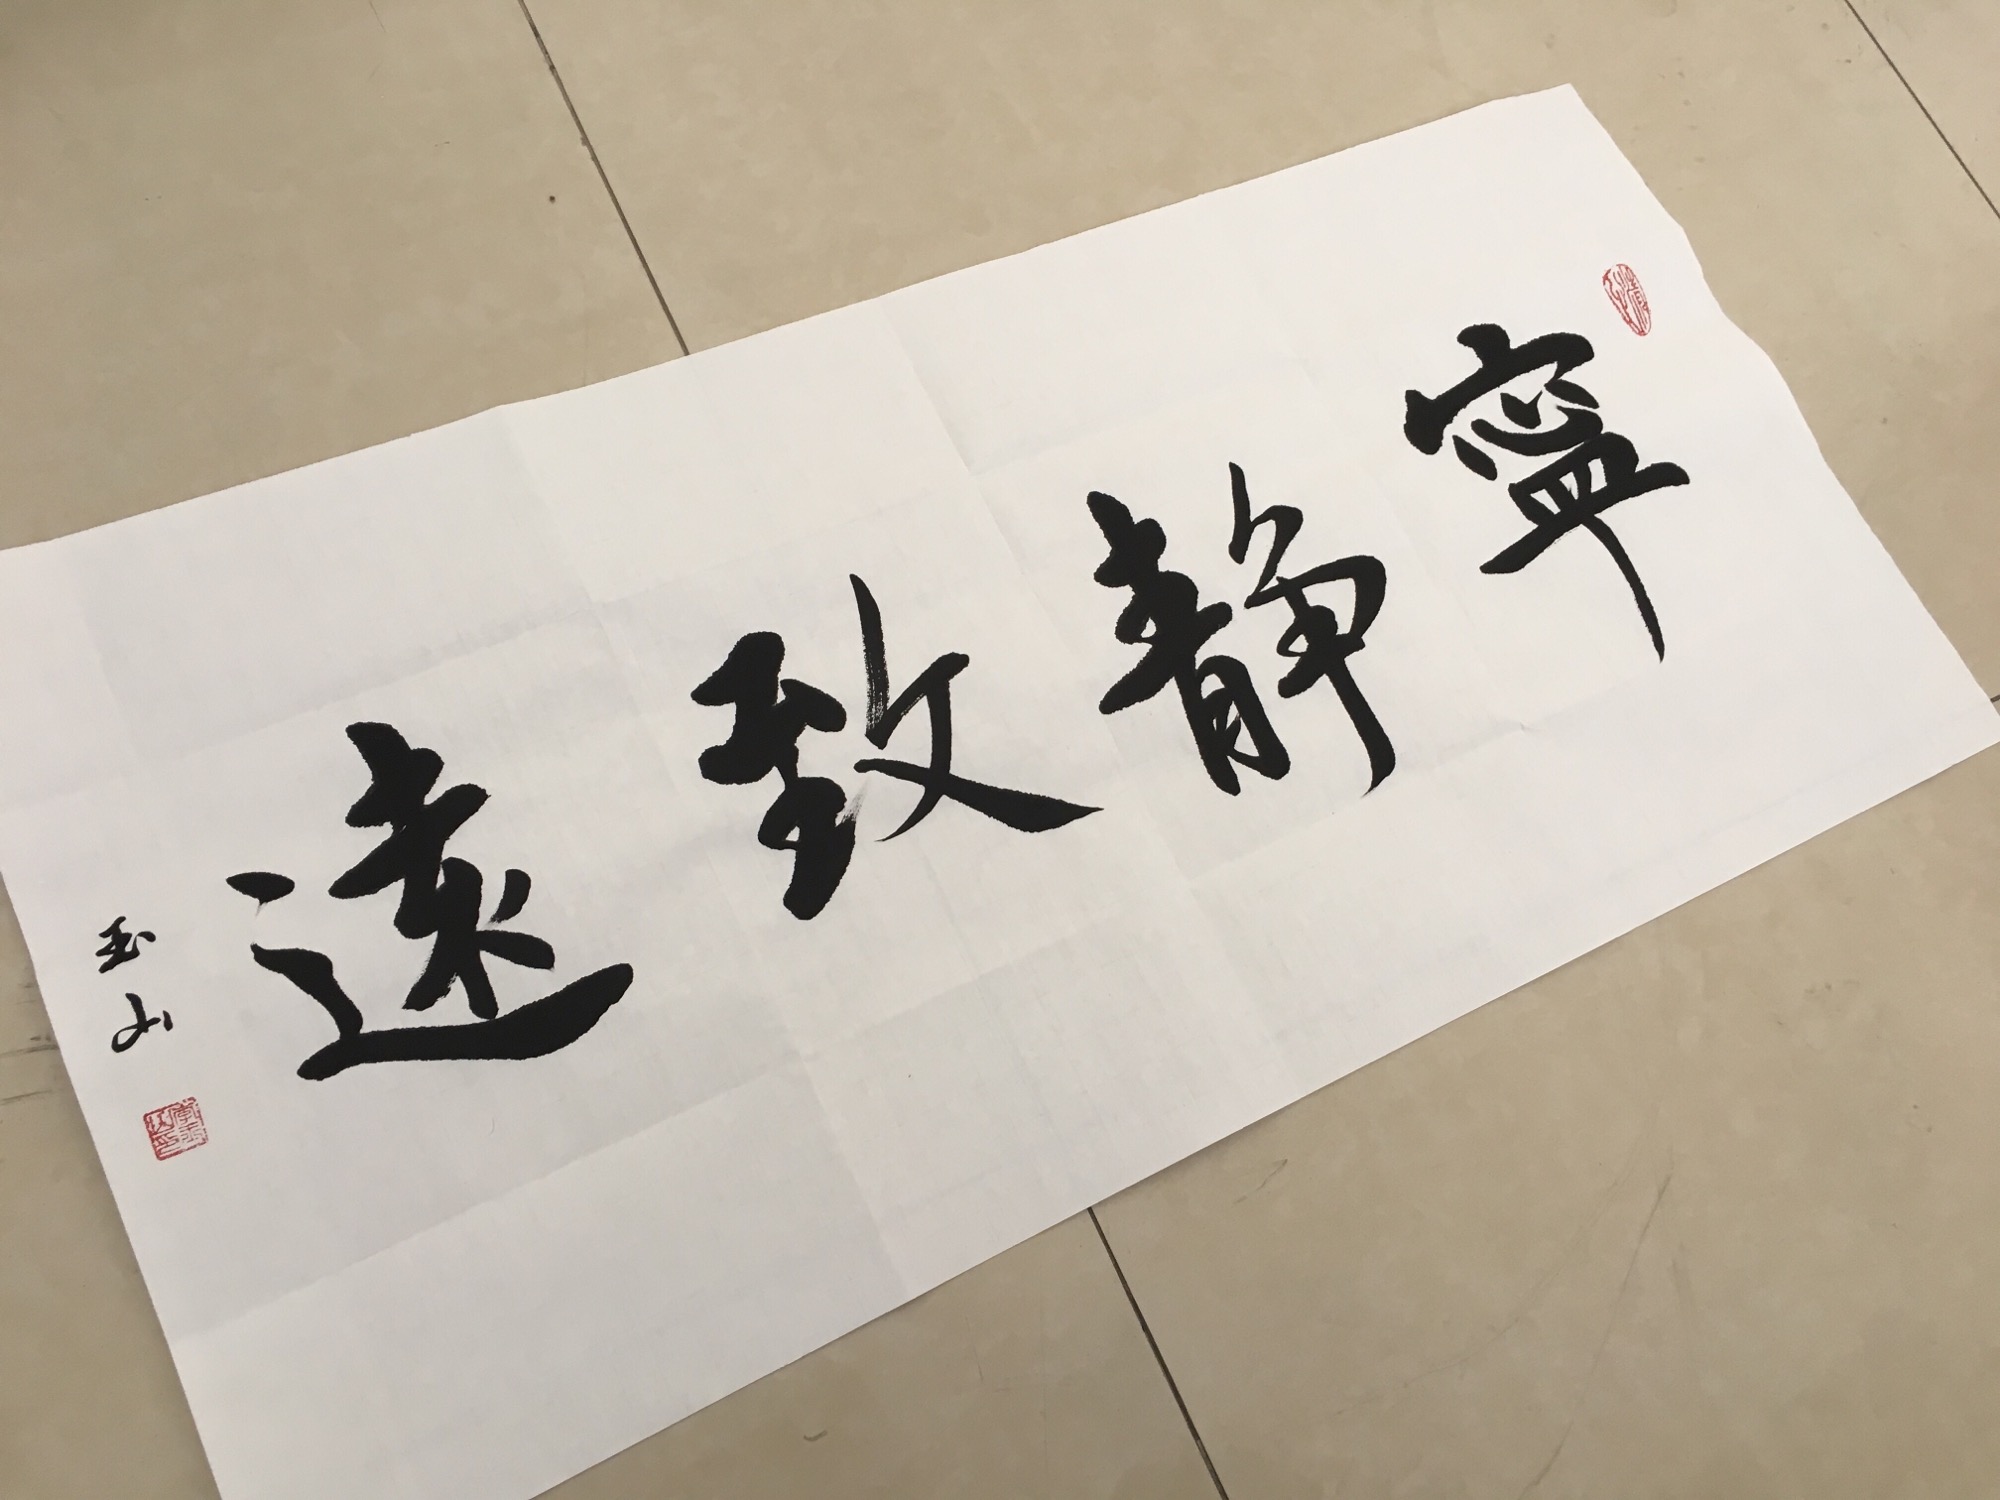 寧静致遠
玉山